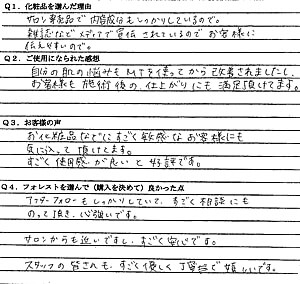 Q1．化粧品を選んだ理由
サロン専売品で内容成分もしっかりしているので。
雑誌などメディアで宣伝されているのでお客様に
伝えやすいので。
Q2．ご使用になられた感想
自分の肌の悩みもMTを使ってから改善されましたし、
お客様も施術後の仕上がりにも満足頂けてます。
Q3．お客様の声
お化粧品などにすごく敏感なお客様にも
気に入って頂けてます。
すごく使用感が良いと好評です。
Q4．フォレストを選んで（購入を決めて）良かった点
アフターフォローもしっかりしていて、すごく相談にも
のって頂き、心強いです。
サロンからも近いですし、すごく安心です。
スタッフの皆さんも、すごく優しく丁寧で嬉しいです。